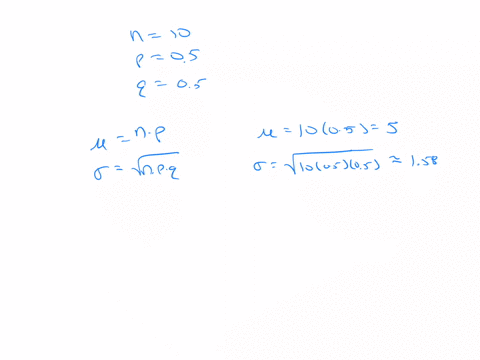 n = 10
p = 0.5
q = 0.5
μ = n·p
σ = √n·p·q
μ = 10(0.5) = 5
σ = √10(0.5)(0.5) ≈ 1.58